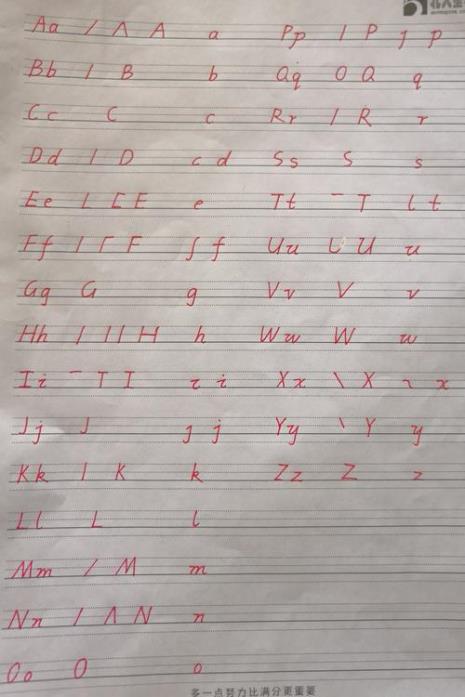 Aa / Λ A a Pp / P J p
Bb / B b Qq O Q q
Cc C c Rr / R r
Dd / D c d Ss S s
Ee L [ E e Tt ‾ T l t
Ff / Γ F ʃ f Uu U U u
Gg G g Vv V v
Hh / | | H h Ww W w
Ii ‾ T I ı i Xx \ X ヽ x
Jj J ȷ j Yy \ Y y
Kk / K k Zz Z z
Ll L l
Mm / M m
Nn / Λ N n
Oo O o
多一点努力比满分更重要